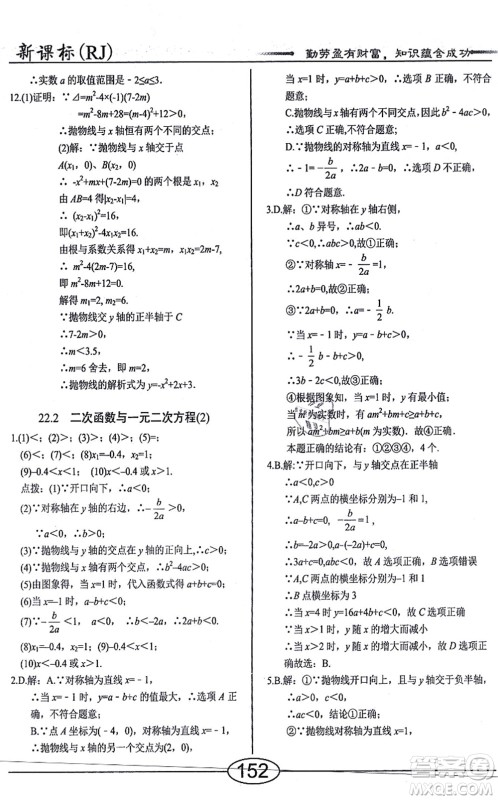 新课标(RJ)
勤劳盈有财富，知识蕴含成功
∴实数a的取值范围是-2≤a≤3.
12.(1)证明：∵Δ=m²-4×(-1)(7-2m)
=m²-8m+28=(m-4)²+12>0,
∴抛物线与x轴恒有两个不同的交点；
(2)解：∵抛物线与x轴交于点
A(x₁,0)、B(x₂,0)
∴-x²+mx+(7-2m)=0的两个根是x₁、x₂.
由AB=4得|x₁-x₂|=4
∴(x₁-x₂)²=16
∴(x₁+x₂)²-4x₁x₂=16.
由根与系数关系得x₁+x₂=m, x₁x₂=2m-7.
∴m²-8m+12=0.
解得m₁=2,m₂=6.
∵抛物线交y轴的正半轴于C
∴7-2m>0
∴m<3.5,
∴m=6舍去，即m=2.
∴抛物线的解析式为y=-x²+2x+3.
22.2 二次函数与一元二次方程(2)
1.(1)<； (2)>； (3)>； (4)>； (5)=；
(6)<； (7)<； (8)x₁=-0.4,x₂=2.4；
(9)-0.4<x<2.4； (10)x<-0.4或x>2.4.
点拨：(1)∵开口向下，∴a<0；
(2)∵抛物线与y轴的右边，-b/2a>0,
∵a<0,∴b>0；
(3)∵抛物线与y轴的交点在y轴的正向上,∴c>0；
(4)∵抛物线与x轴有两个交点，∴b²-4ac>0；
(5)由图象得，当x=1时，代入函数式得a+b+c=0；
(6)当x=-1时，y<0,即a-b+c<0；
(7)∵-b/2a<1,a<0,∴2a+b<0；
(8)x₁=-0.4,x₂=2.4；
(9)-0.4<x<2.4； (10)x<-0.4或x>2.4.
2.D.解：A.∵抛物线的对称轴为直线x=-1,
∴当x=-1时，a-b+c的值最大，选项A不
符合题意；
B.∵(-4，0)，对称轴为直线x=-1,
∴抛物线与x轴的另一个交点为(2，0)，
当x=1时，a+b+c>0,∴选项B不符合
题意；
C.抛物线与x轴有两个交点，因此b²-4ac
>0，故选项C不符合题意；
D.∵抛物线的对称轴为直线x=-1,
∴-1=-b/2a，∴2a=b，∴选项D不正确.
∴D符合题意.
3.D.解：①∵对称轴在y轴右侧，
∴a、b异号，∴ab<0.
∵c<0,∴abc>0,故①正确；
②∵对称轴x=-b/2a=1,
∴2a+b=0,故②正确；
③∵2a+b=0,∴a=-1/2 b,
∵当x=-1时，y=a-b+c>0,
∴-1/2 b-b+c>0
∴3b-2c<0,故③正确；
④根据图象知，当x=1时，y有最小值；
当m为实数时，有am²+bm+c≥a+b+c，
所以am²+bm≥a+b(m为实数).故④正确.
本题正确的结论有：①②③④
4.B.解：∵开口向下，与y轴交点在正半轴
∴a<0,c>0
∵A,C两点的横坐标分别为-1和1,
∴a-b+c=0,a+b+c>0
∴b>0,
∴a-(-2a)+c=3a+c=0,∴选项A错误
∴3a+2c>0,∴选项B正确
∴B点横坐标为3
∴当x=4时，y=16a+4b+c<0,
∴当x>1时，y随x的增大而减小
∴当x>3时，y随x的增大而减小
故选：B.
5.B.解：①∵抛物线开口向上，与y轴交于负半轴,
∴a>0，c<0，∴ac<0,
∴结论①正确；
②∵抛物线对称轴为直线x=1,
152
答案圈
MXQE.COM